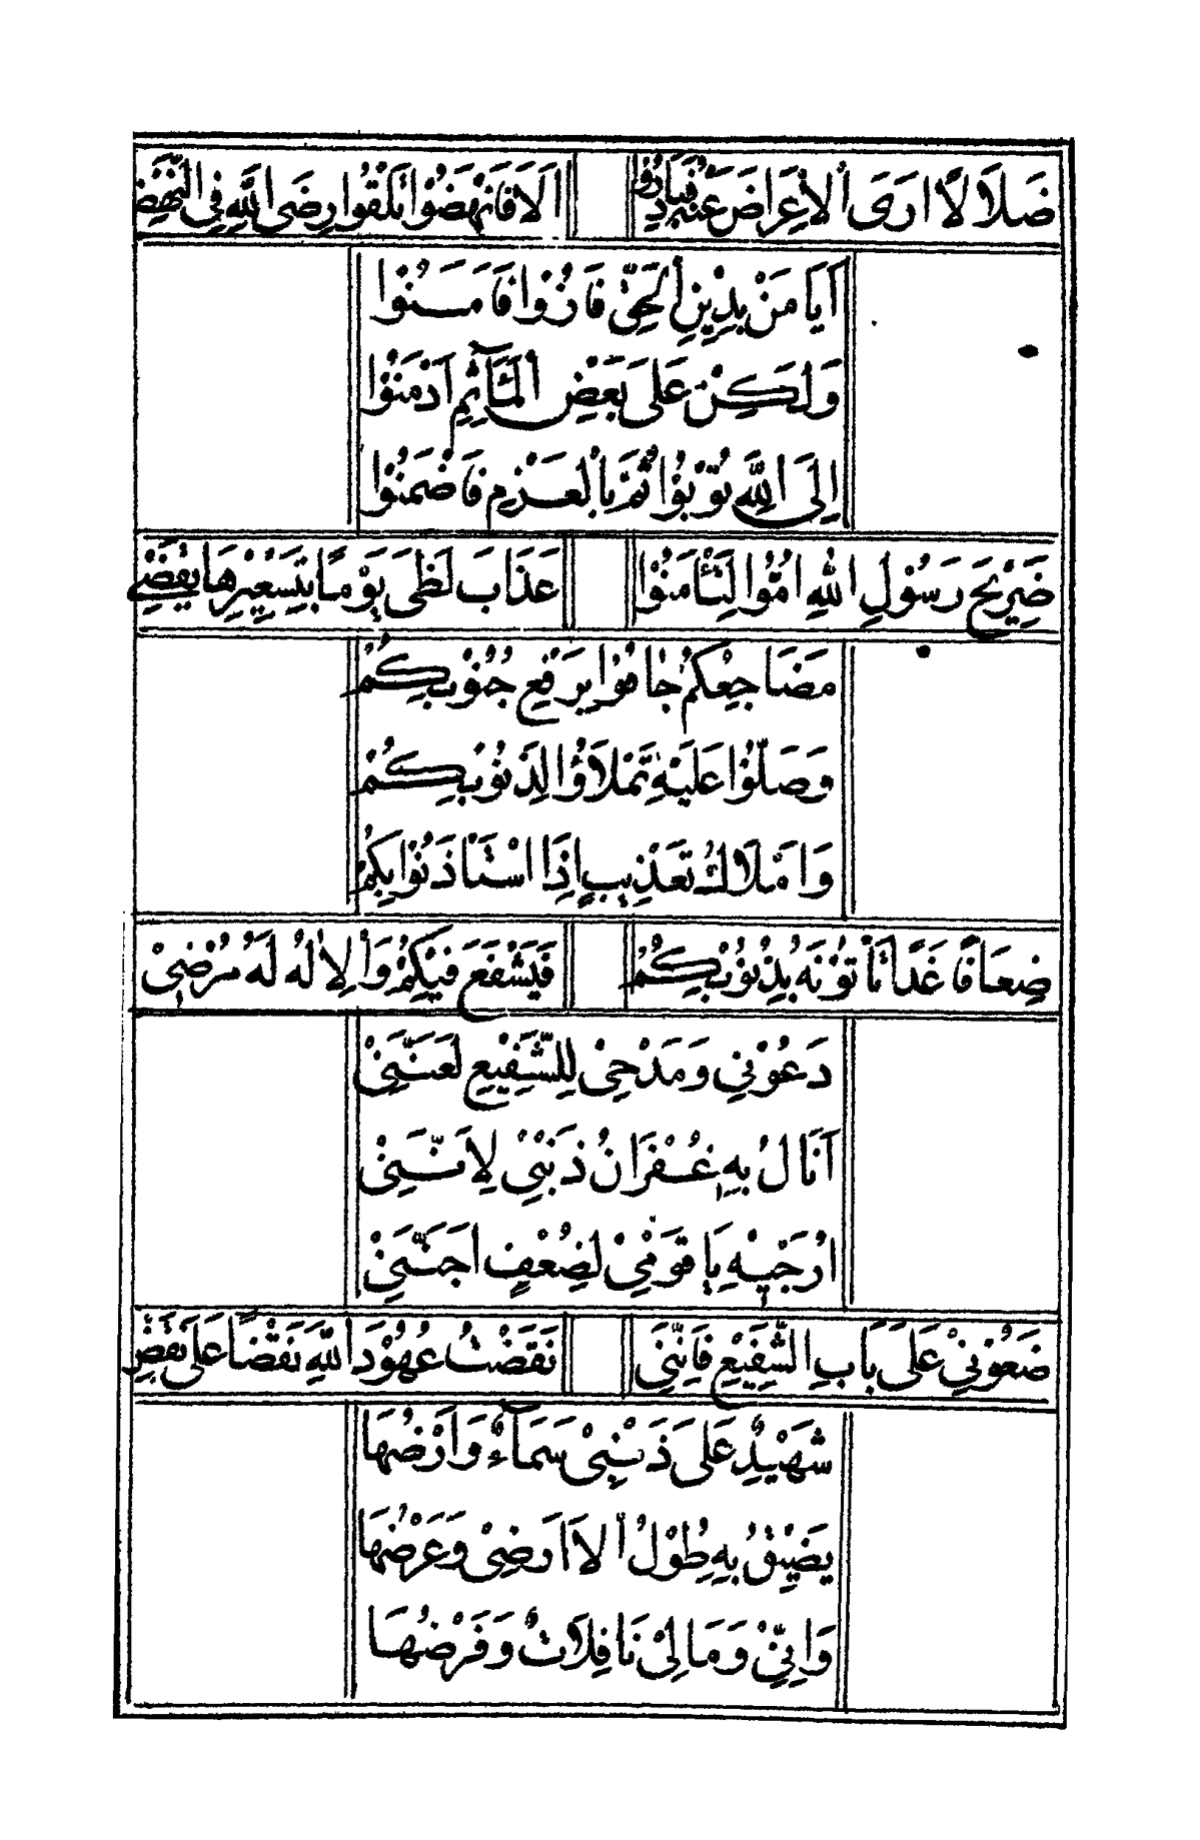 ضَلَالًا اَرَى الْاَعْرَاضَ عَنْهُ فَبَادِرُوْا اَلَا فَانْهَضُوْا تَلْقَوْا رِضَى اللّٰهِ فِى النَّهْضِ
اَيَا مَنْ بِدِيْنِ الْحَقِّ فَازُوْا فَاٰمَنُوْا
وَلٰكِنْ عَلٰى بَعْضِ الْمَآثِمِ اَدْمَنُوْا
اِلَى اللّٰهِ تُوْبُوْا ثُمَّ بِالْعَزْمِ فَاضْمَنُوْا
ضَرِيْحَ رَسُوْلِ اللّٰهِ اُمُّوْا لِتَأْمَنُوْا عَذَابَ لَظٰى يَوْمًا بِتَسْعِيْرِهَا يَقْضِىْ
مَضَاجِعَكُمْ جَافُوْا بِرَفْعِ جُنُوْبِكُمْ
وَصَلُّوْا عَلَيْهِ تَمْلَاَوْا لِذَنُوْبِكُمْ
وَاَمْلَاكُ تَعْذِيْبٍ اِذَا اسْتَأْذَنُوْا بِكُمْ
ضِعَافًا غَدًا تَأْتُوْنَهُ بِذُنُوْبِكُمْ فَيَشْفَعُ فِيْكُمْ وَالْاِلٰهُ لَهُ مُرْضِىْ
دَعُوْنِىْ وَمَدْحِىْ لِلشَّفِيْعِ لَعَلَّنِىْ
اَنَالُ بِهِ غُفْرَانَ ذَنْبِىْ لِاَنَّنِىْ
اُرَجِّيْهِ يَا قَوْمِىْ لِضُعْفٍ اَجَنَّنِىْ
ضَعُوْنِىْ عَلٰى بَابِ الشَّفِيْعِ فَاِنَّنِىْ نَقَضْتُ عُهُوْدَ اللّٰهِ نَقْضًا عَلٰى نَقْضِ
شَهِيْدٌ عَلٰى ذَنْبِىْ سَمَآءٌ وَاَرْضُهَا
يَضِيْقُ بِهِ طُوْلُ الْاَرَاضِىْ وَعَرْضُهَا
وَاِنِّىْ وَمَا لِىْ نَافِلَاتٌ وَفَرْضُهَا